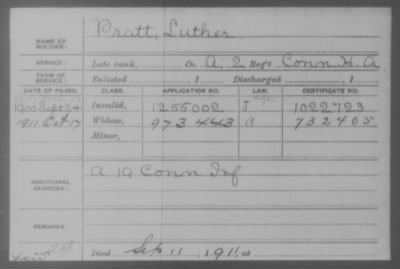 NAME OF SOLDIER: Pratt, Luther.
SERVICE: Late rank, Co. A, 2 Reg't Conn H. A.
TERM OF SERVICE: Enlisted , 1 Discharged , 1
DATE OF FILING. CLASS. APPLICATION NO. LAW. CERTIFICATE NO.
1900 Sept 24 Invalid, 1255002 J 1022723
1911 Oct 17 Widow, 973443 a 732405
Minor,
ADDITIONAL SERVICES: A 19 Conn Inf
REMARKS:
Died Sep 11, 1911, at